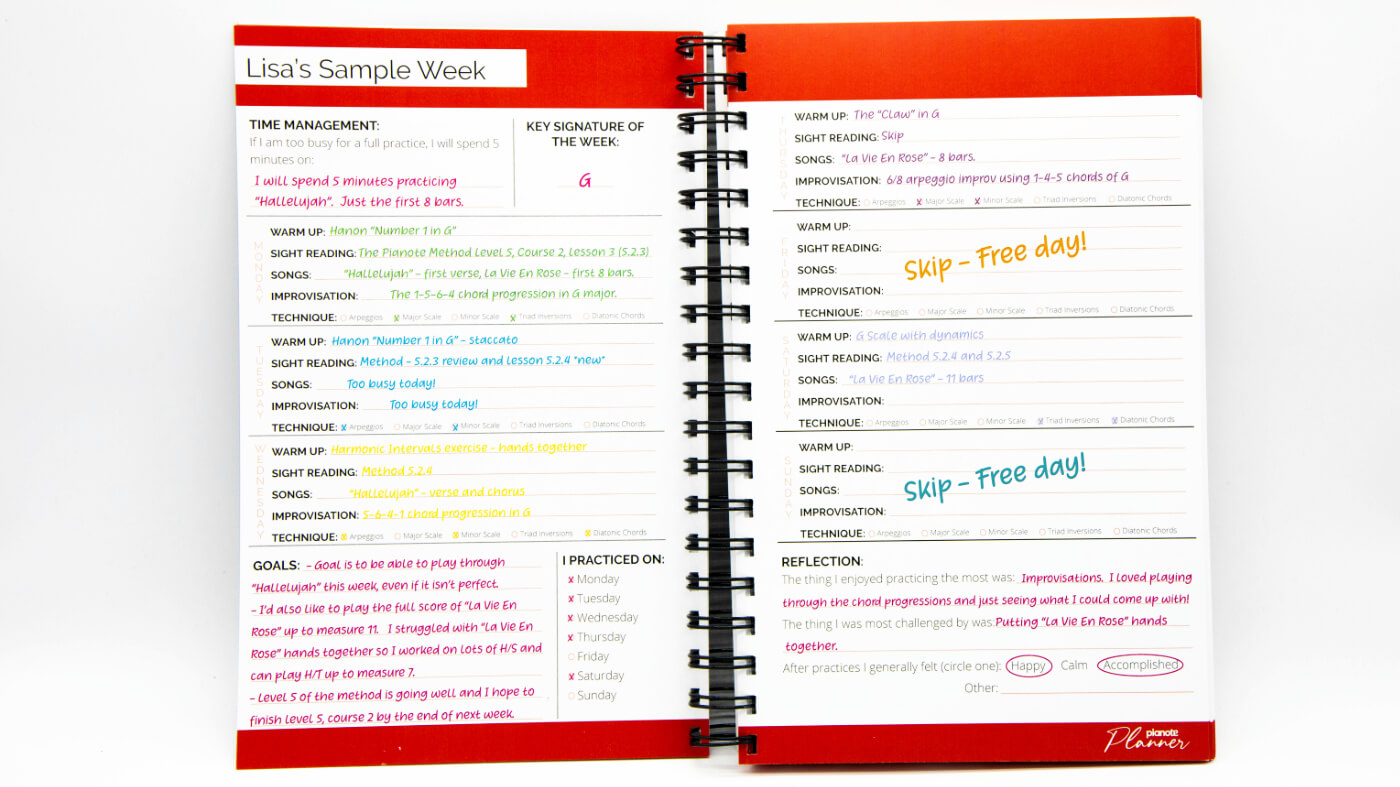 Lisa's Sample Week
TIME MANAGEMENT:
If I am too busy for a full practice, I will spend 5
minutes on:
I will spend 5 minutes practicing
"Hallelujah". Just the first 8 bars.
KEY SIGNATURE OF
THE WEEK:
G
MONDAY
WARM UP: Hanon "Number 1 in G"
SIGHT READING: The Pianote Method Level 5, Course 2, Lesson 3 (5.2.3)
SONGS: "Hallelujah" - first verse, La Vie En Rose - first 8 bars.
IMPROVISATION: The 1-5-6-4 chord progression in G major.
TECHNIQUE: Arpeggios x Major Scale Minor Scale x Triad Inversions Diatonic Chords
TUESDAY
WARM UP: Hanon "Number 1 in G" - staccato
SIGHT READING: Method - 5.2.3 review and lesson 5.2.4 *new*
SONGS: Too busy today!
IMPROVISATION: Too busy today!
TECHNIQUE: x Arpeggios Major Scale x Minor Scale Triad Inversions Diatonic Chords
WEDNESDAY
WARM UP: Harmonic Intervals exercise - hands together
SIGHT READING: Method 5.2.4
SONGS: "Hallelujah" - verse and chorus
IMPROVISATION: 5-6-4-1 chord progression in G
TECHNIQUE: x Arpeggios Major Scale x Minor Scale Triad Inversions x Diatonic Chords
GOALS: - Goal is to be able to play through
"Hallelujah" this week, even if it isn't perfect.
- I'd also like to play the full score of "La Vie En
Rose" up to measure 11. I struggled with "La Vie En
Rose" hands together so I worked on lots of H/S and
can play H/T up to measure 7.
- Level 5 of the method is going well and I hope to
finish level 5, course 2 by the end of next week.
I PRACTICED ON:
x Monday
x Tuesday
x Wednesday
x Thursday
Friday
x Saturday
Sunday
THURSDAY
WARM UP: The "Claw" in G
SIGHT READING: Skip
SONGS: "La Vie En Rose" - 8 bars.
IMPROVISATION: 6/8 arpeggio improv using 1-4-5 chords of G
TECHNIQUE: Arpeggios x Major Scale x Minor Scale Triad Inversions Diatonic Chords
FRIDAY
WARM UP:
SIGHT READING:
SONGS:
Skip - Free day!
IMPROVISATION:
TECHNIQUE: Arpeggios Major Scale Minor Scale Triad Inversions Diatonic Chords
SATURDAY
WARM UP: G Scale with dynamics
SIGHT READING: Method 5.2.4 and 5.2.5
SONGS: "La Vie En Rose" - 11 bars
IMPROVISATION:
TECHNIQUE: Arpeggios Major Scale Minor Scale x Triad Inversions x Diatonic Chords
SUNDAY
WARM UP:
SIGHT READING:
SONGS:
Skip - Free day!
IMPROVISATION:
TECHNIQUE: Arpeggios Major Scale Minor Scale Triad Inversions Diatonic Chords
REFLECTION:
The thing I enjoyed practicing the most was: Improvisations. I loved playing
through the chord progressions and just seeing what I could come up with!
The thing I was most challenged by was: Putting "La Vie En Rose" hands
together.
After practices I generally felt (circle one): Happy Calm Accomplished
Other:
pianote
Planner